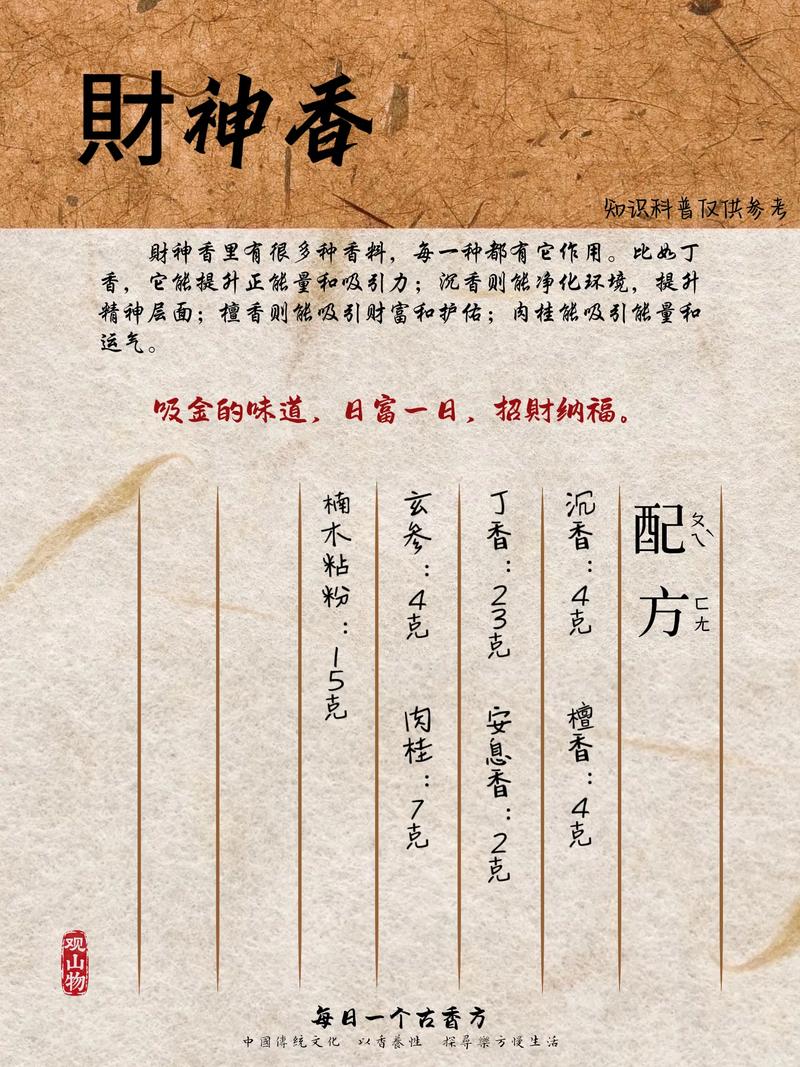 財神香
知识科普仅供参考
財神香里有很多种香料，每一种都有它作用。比如丁
香，它能提升正能量和吸引力；沉香则能净化环境，提升
精神层面；檀香则能吸引财富和护佑；肉桂能吸引能量和
运气。
吸金的味道，日富一日，招财纳福。
配方
ㄆㄟˋ ㄈㄤ
沉香：4克 檀香：4克
丁香：23克 安息香：2克
玄参：4克 肉桂：7克
楠木粘粉：15克
观山物
每日一个古香方
中國傳統文化 以香養性 探尋樂方慢生活